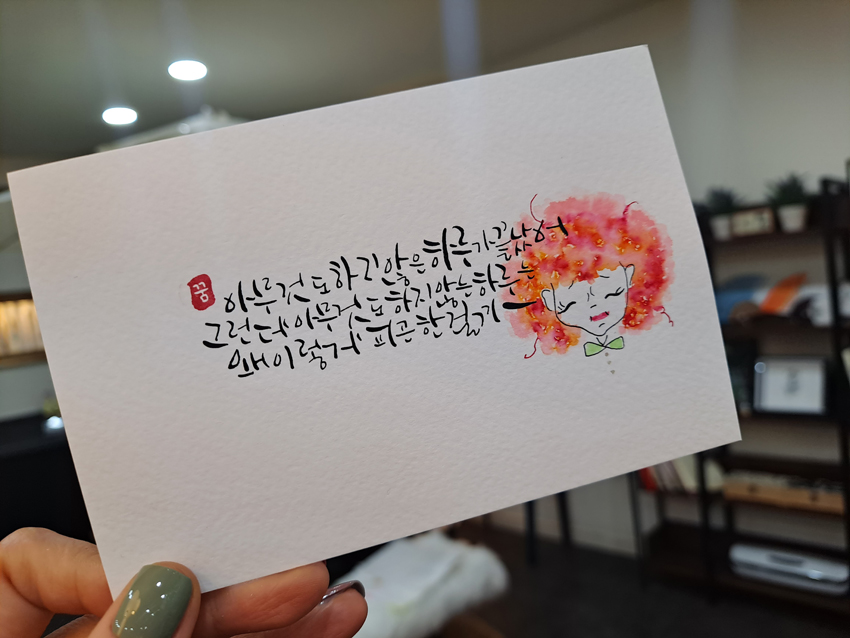 꿈
아무것도 하지 않은 하루가 끝났어
그런데 아무것도 하지 않는 하루는
왜 이렇게 피곤한 걸까